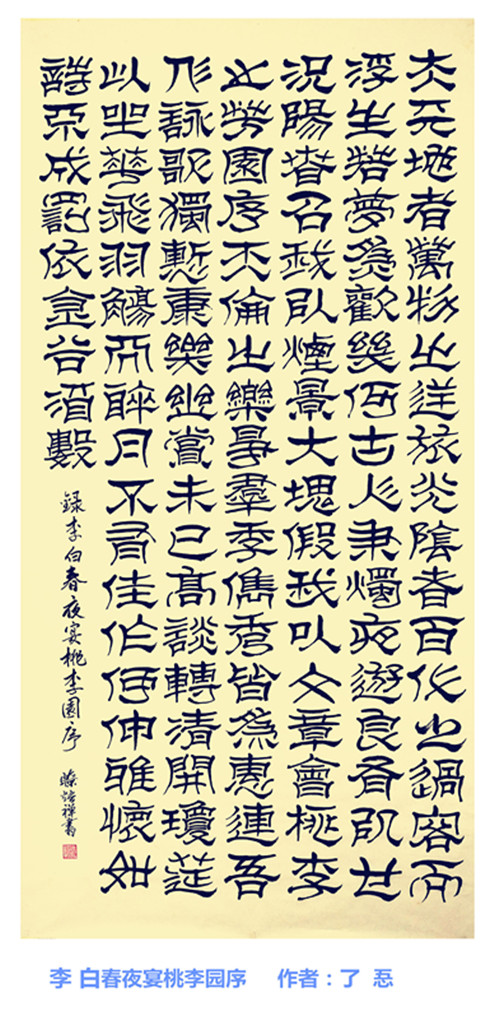 夫天地者萬物之逆旅光陰者百代之過客而
浮生若夢爲歡幾何古人秉燭夜遊良有以也
況陽春召我以煙景大塊假我以文章會桃李
之芳園序天倫之樂事羣季儁秀皆爲惠連吾
人詠歌獨慙康樂幽賞未已高談轉清開瓊筵
以坐華飛羽觴而醉月不有佳作何伸雅懷如
詩不成罰依金谷酒數
録李白春夜宴桃李園序
李 白春夜宴桃李园序 作者：了 忍